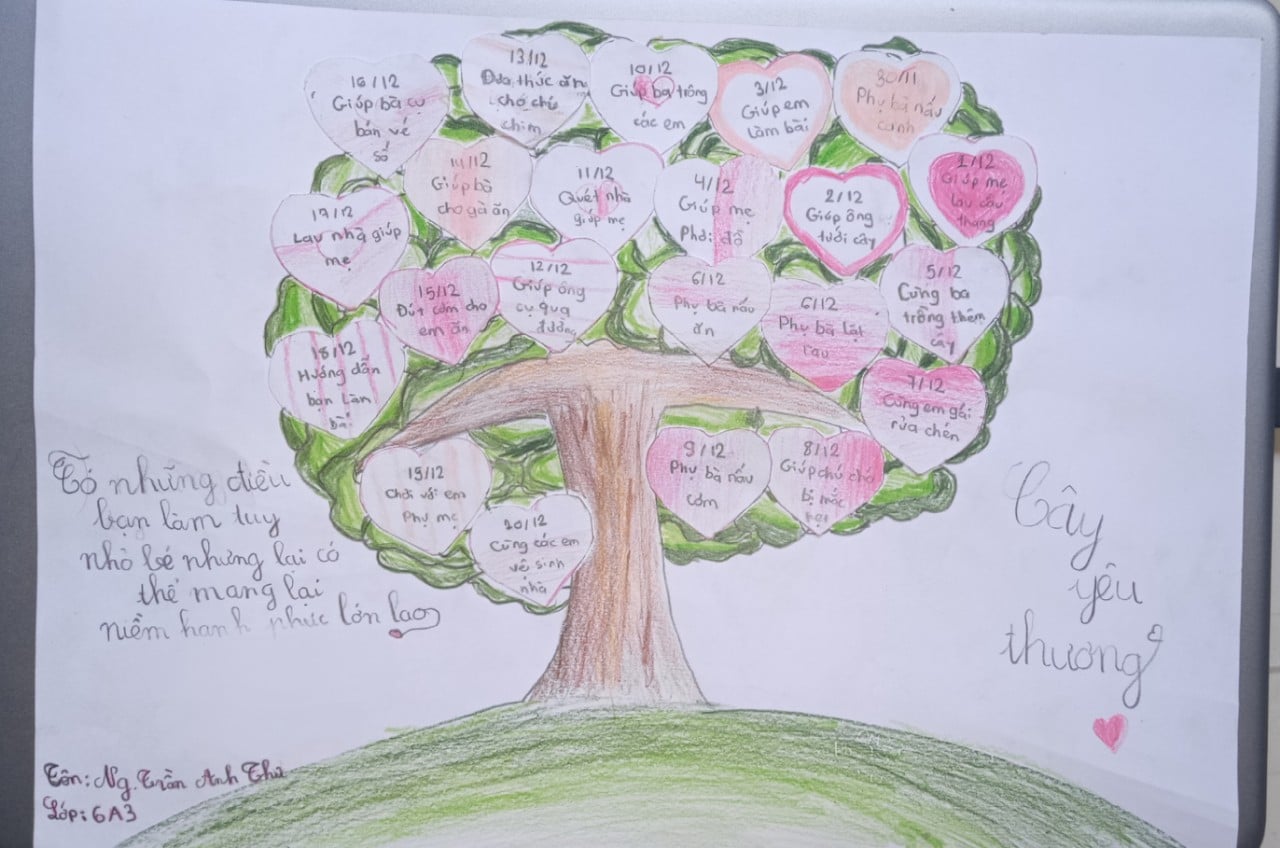 16/12
Giúp bà cụ
bán vé
số
13/12
Đưa thức ăn
cho chú
chim
10/12
Giúp ba trông
các em
3/12
Giúp em
làm bài
30/11
Phụ bà nấu
canh
14/12
Giúp bà
cho gà ăn
11/12
Quét nhà
giúp mẹ
4/12
Giúp mẹ
Phơi đồ
2/12
Giúp ông
tưới cây
1/12
Giúp mẹ
lau cầu
thang
17/12
Lau nhà giúp
mẹ
15/12
Đút cơm cho
em ăn
12/12
Giúp ông
cụ qua
đường
6/12
Phụ bà nấu
ăn
6/12
Phụ bà lặt
rau
5/12
Cùng ba
trồng thêm
cây
18/12
Hướng dẫn
bạn làm
bài
7/12
Cùng em gái
rửa chén
19/12
Chơi với em
Phụ mẹ
20/12
Cùng các em
vệ sinh
nhà
9/12
Phụ bà nấu
cơm
8/12
Giúp chú chó
bị mắc
kẹt
Có những điều
bạn làm tuy
nhỏ bé nhưng lại có
thể mang lại
niềm hạnh phúc lớn lao
Cây
yêu
thương
Tên: Ng. Trần Anh Thư
Lớp: 6A3